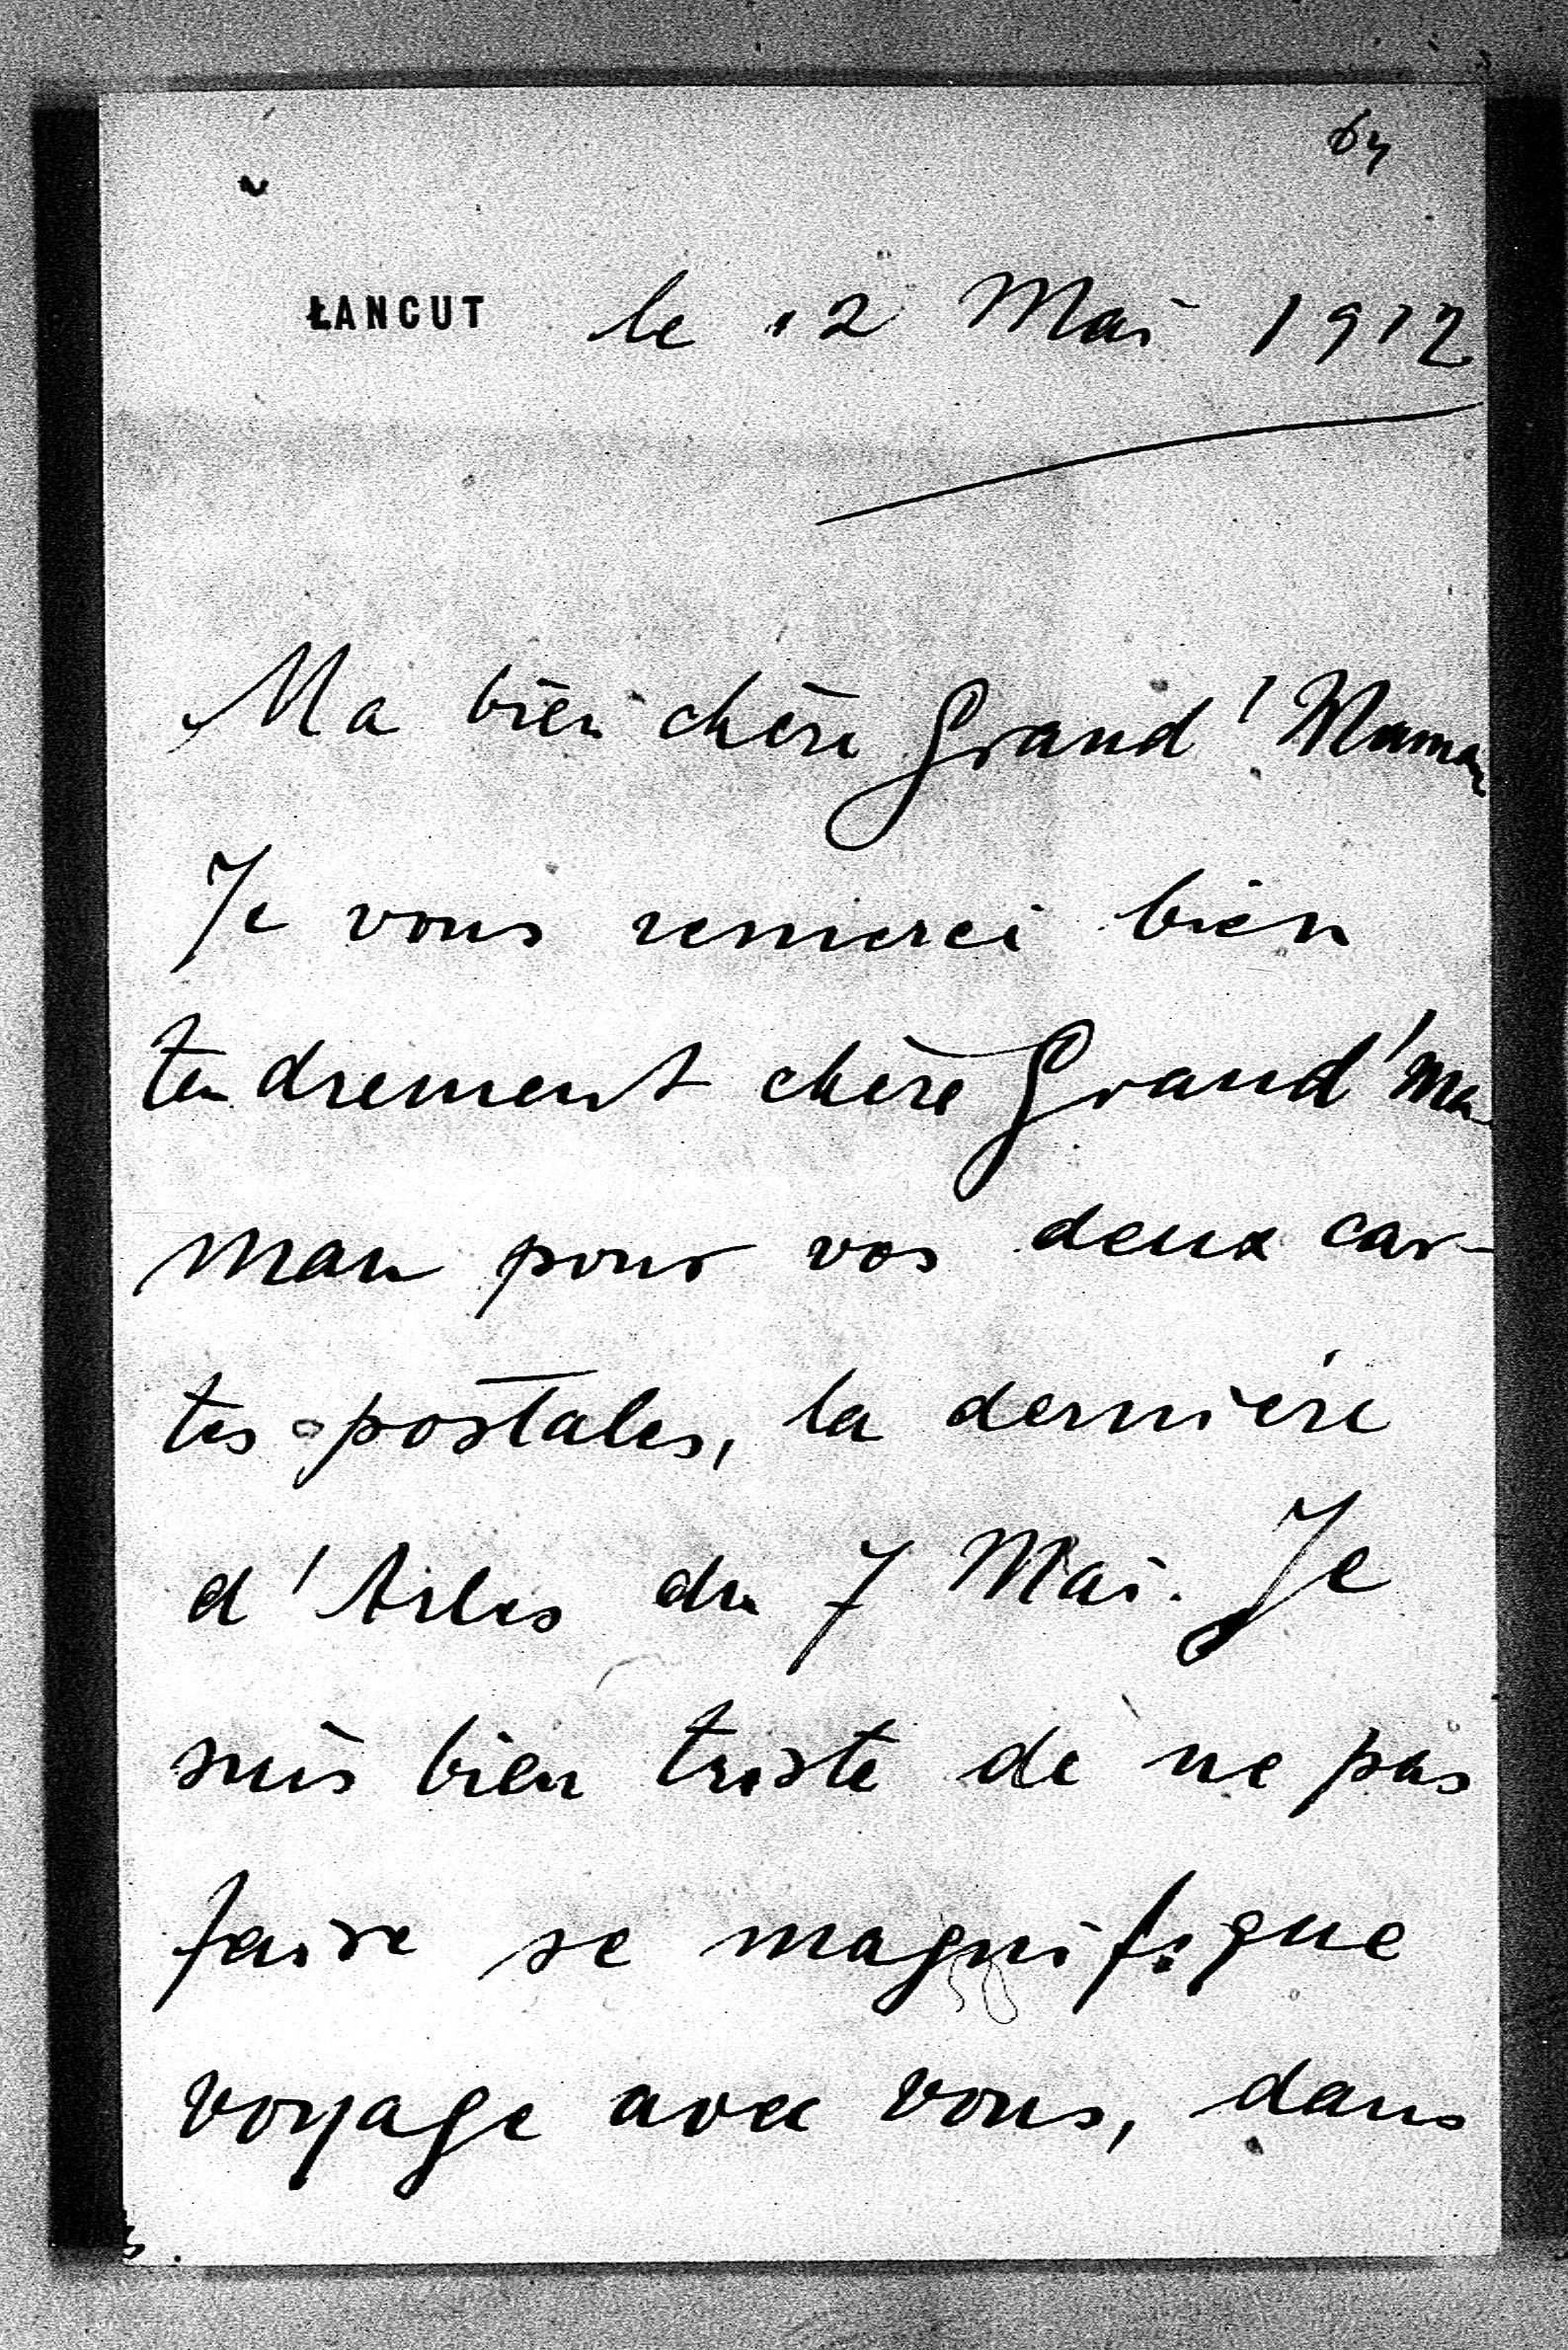 ŁANCUT le 12 Mai 1912
Ma bien chère Grand'Maman
Je vous remerci bien
tendrement chère Grand'Ma
man pour vos deux car-
tes postales, la dernière
d'Arles du 7 Mai. Je
suis bien triste de ne pas
faire se magnifique
voyage avec vous, dans